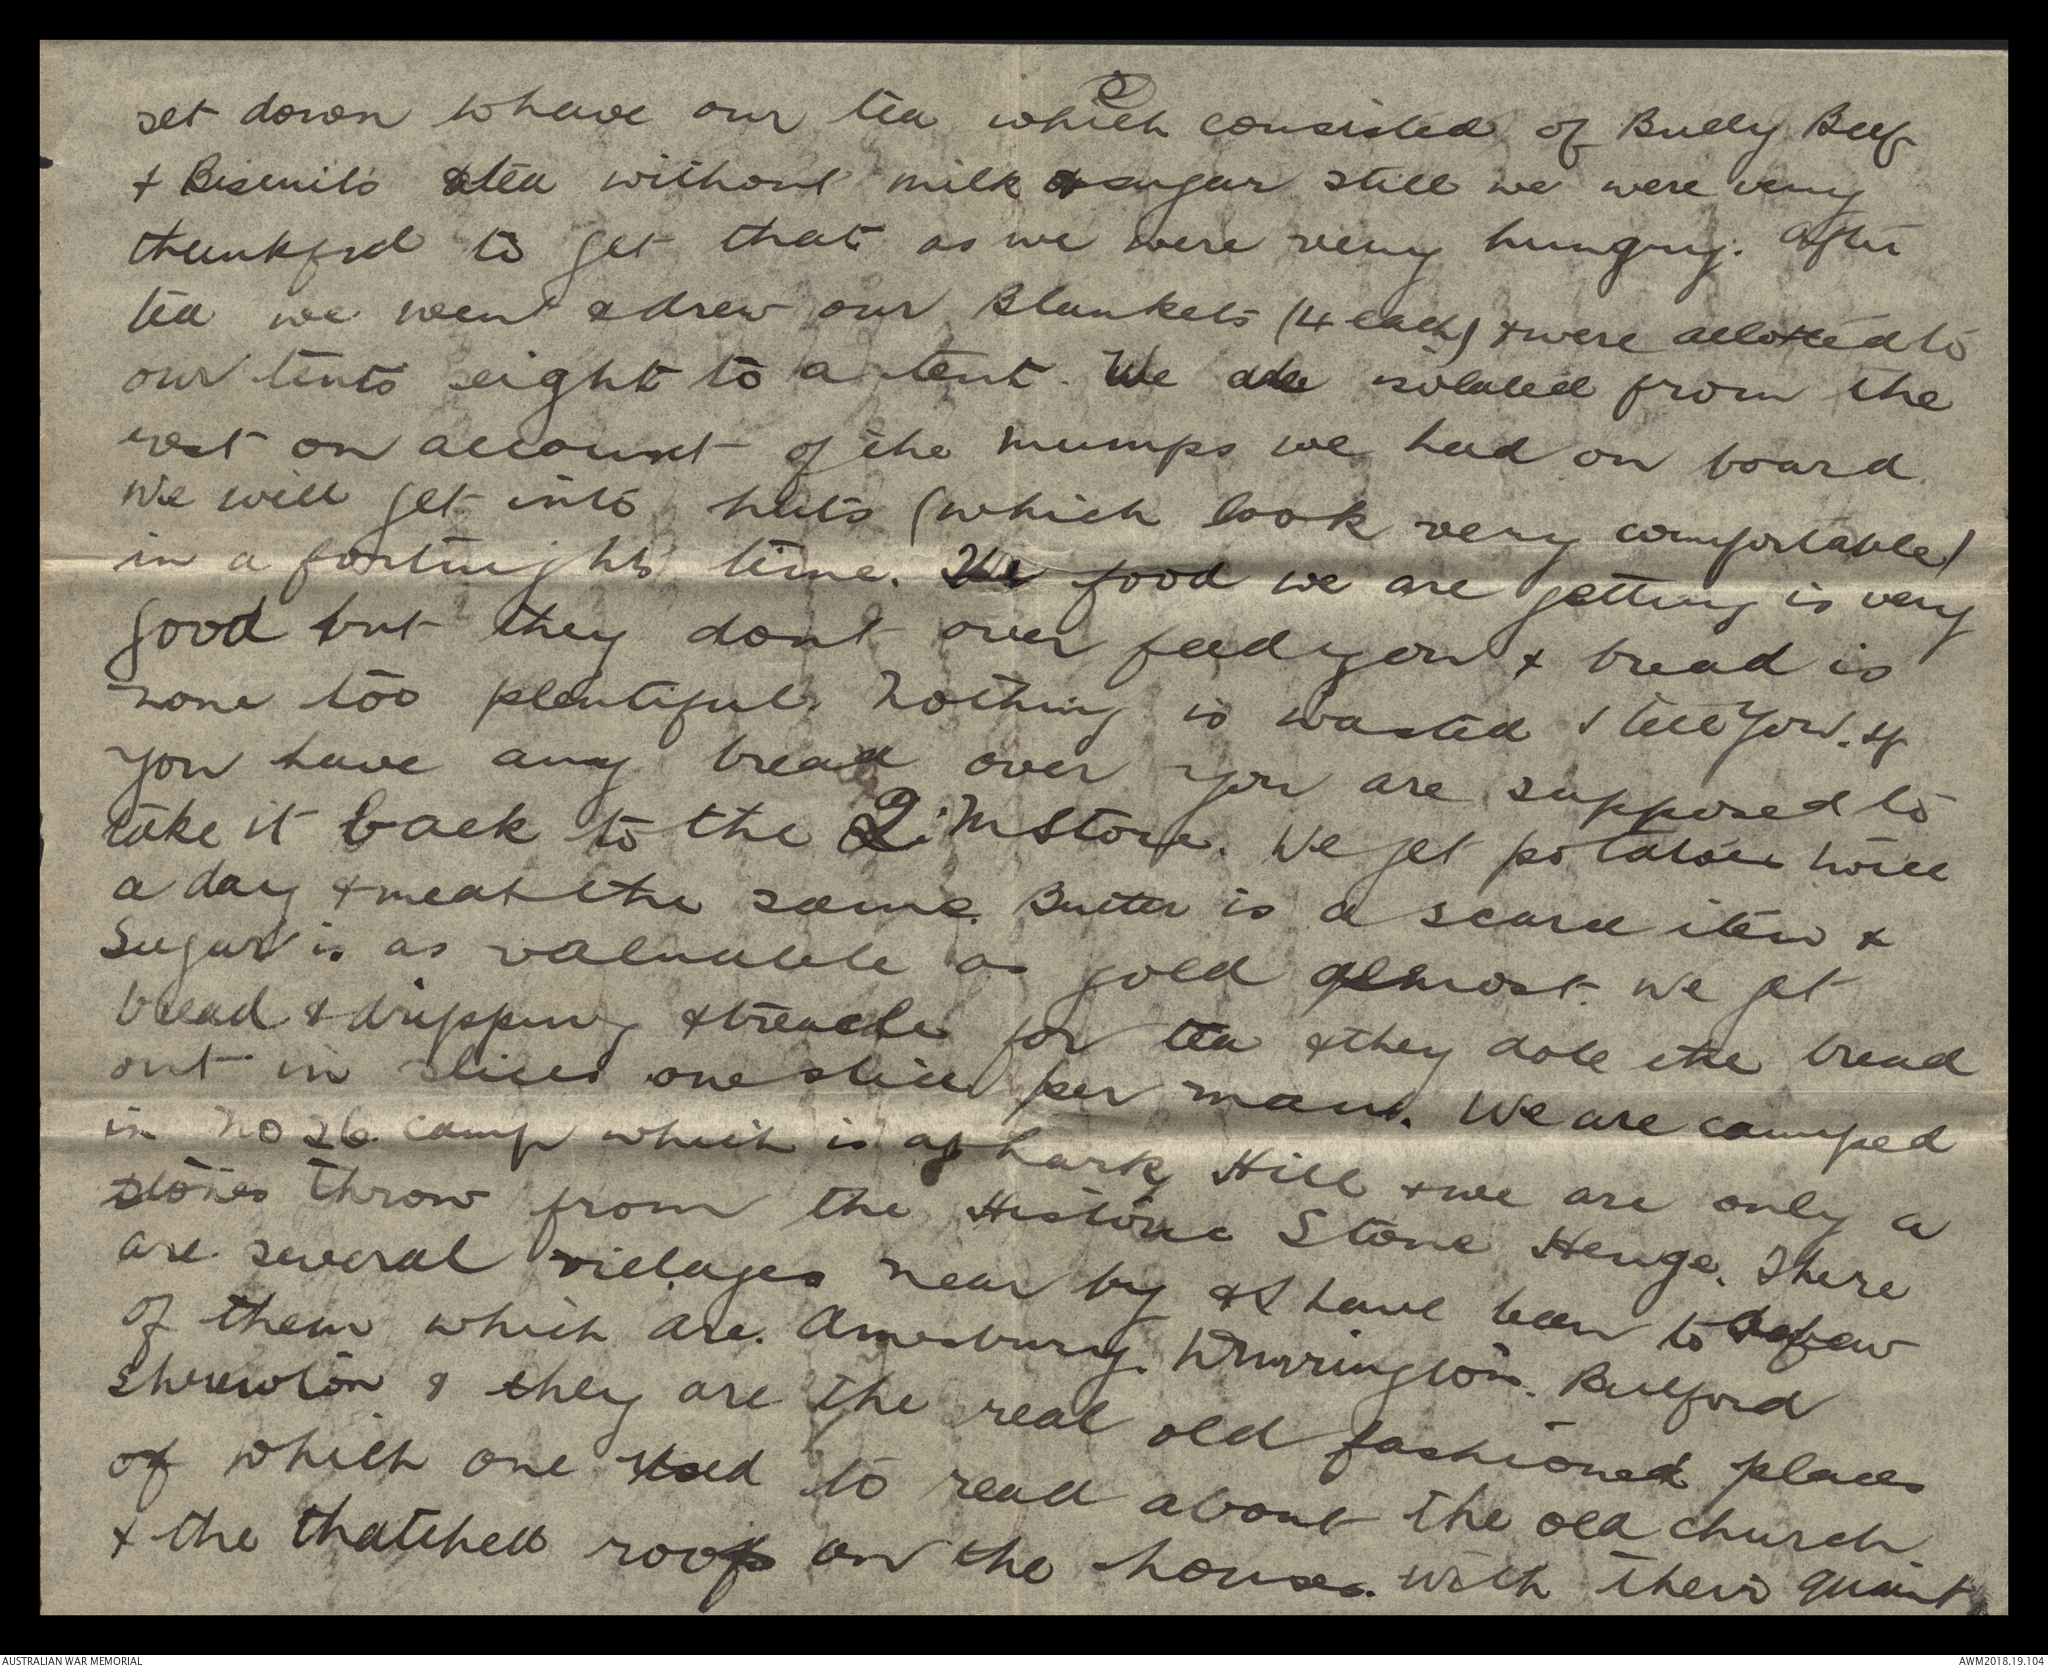 set down to have our tea which consisted of Bully Beef
+ Biscuits & tea without milk or sugar still we were very
thankful to get that as we were very hungry. After
tea we went & drew our Blankets (4 each) + were allotted to
our tents eight to a tent. We are isolated from the
rest on account of the mumps we had on board
We will get into huts (which look very comfortable)
in a fortnights' time. The food we are getting is very
good but they dont over feed you + bread is
none too plentiful. Nothing is wasted I tell you. If
you have any bread over you are supposed to
take it back to the Q.M Store. We get potatoes twice
a day + meat the same. Butter is a scarce item +
Sugar is as valuable as gold almost. We get
bread & dripping & treacle for tea & they dole the bread
out in slices one slice per man. We are camped
in No 26 camp which is at Lark Hill + we are only a
stones throw from the Historic Stone Henge. There
are several villages near by & I have been to a few
of them which are. Amesbury. Durrington. Bulford
Shrewton & they are the real old fashioned places
of which one used to read about the old church.
+ the thatched roofs on the houses. with their quaint
AUSTRALIAN WAR MEMORIAL
AWM2018.19.104